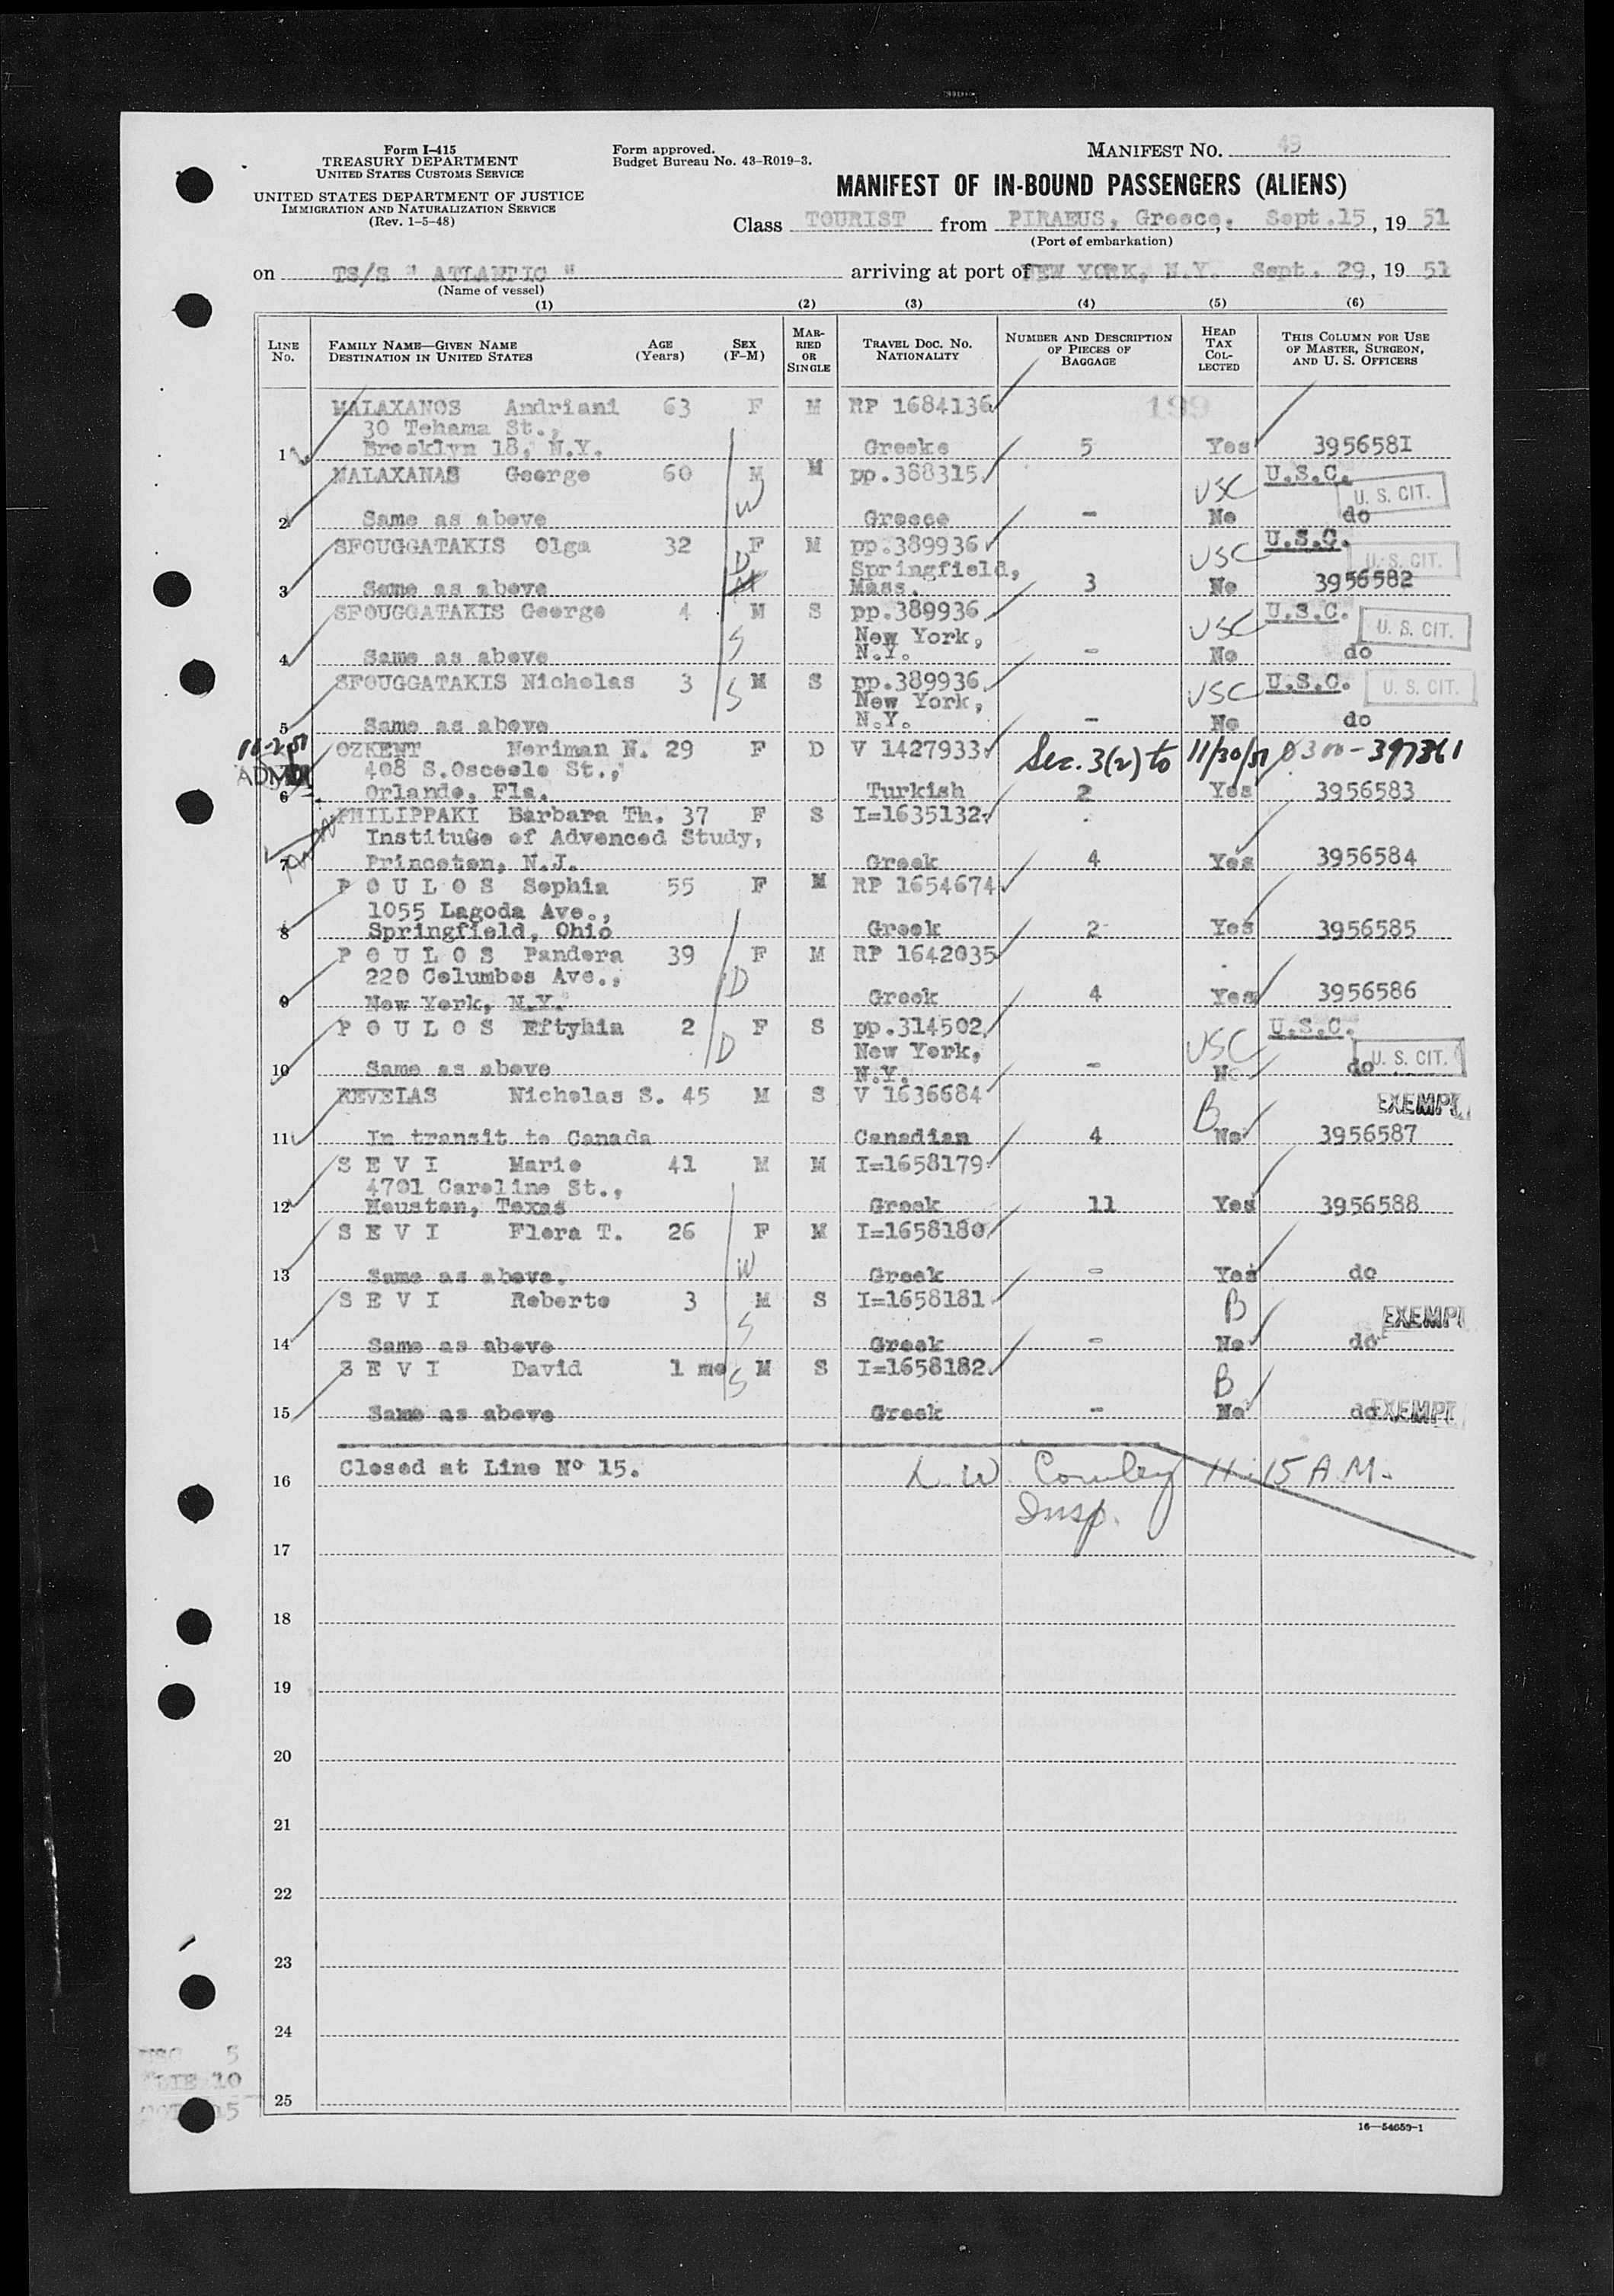 Form I-415
TREASURY DEPARTMENT
UNITED STATES CUSTOMS SERVICE
UNITED STATES DEPARTMENT OF JUSTICE
IMMIGRATION AND NATURALIZATION SERVICE
(Rev. 1-5-48)
Form approved.
Budget Bureau No. 43-R019-3.
MANIFEST NO. 49
MANIFEST OF IN-BOUND PASSENGERS (ALIENS)
Class TOURIST from PIRAEUS, Greece, Sept.15, 19 51
(Port of embarkation)
on TS/S " ATLANTIC " arriving at port of NEW YORK, N.Y. Sept. 29, 19 51
(Name of vessel)
(1) (2) (3) (4) (5) (6)
LINE No. FAMILY NAME—GIVEN NAME DESTINATION IN UNITED STATES AGE (Years) SEX (F-M) MARRIED OR SINGLE TRAVEL DOC. NO. NATIONALITY NUMBER AND DESCRIPTION OF PIECES OF BAGGAGE HEAD TAX COLLECTED THIS COLUMN FOR USE OF MASTER, SURGEON, AND U. S. OFFICERS
MALAXANOS Andriani 63 F M RP 1684136 199
30 Tehama St.,
1 Brooklyn 18, N.Y. Greeke 5 Yes 3956581
MALAXANAS George 60 M M pp.388315 USC U.S.C. U. S. CIT.
W
2 Same as above Greece - No do
SFOUGGATAKIS Olga 32 F M pp.389936 USC U.S.C. U. S. CIT.
D Springfield,
3 Same as above Mass. 3 No 3956582
SFOUGGATAKIS George 4 M S pp.389936 USC U.S.C. U. S. CIT.
S New York,
4 Same as above N.Y. - No do
SFOUGGATAKIS Nicholas 3 S M S pp.389936 USC U.S.C. U. S. CIT.
New York,
5 Same as above N.Y. - No do
OZKENT Neriman N. 29 F D V 1427933 Sec. 3(2) to 11/30/51 0300-397361
408 S.Osceola St.,
ADM
6 Orlando, Fla. Turkish 2 Yes 3956583
PHILIPPAKI Barbara Th. 37 F S I=1635132
Institute of Advanced Study,
7 Princeton, N.J. Greek 4 Yes 3956584
P O U L O S Sophia 55 F M RP 1654674
1055 Lagoda Ave.,
8 Springfield, Ohio Greek 2 Yes 3956585
P O U L O S Pandora 39 F M RP 1642035
220 Columbos Ave.,
D
9 New York, N.Y. Greek 4 Yes 3956586
P O U L O S Eftyhia 2 F S pp.314502 USC U.S.C. U. S. CIT.
D New York,
10 Same as above N.Y. - No do
REVELAS Nicholas S. 45 M S V 1636684 B EXEMPT
11 In transit to Canada Canadian 4 No 3956587
S E V I Mario 41 M M I=1658179
4701 Caroline St.,
12 Houston, Texas Greek 11 Yes 3956588
S E V I Flora T. 26 F M I=1658180
W
13 Same as above. Greek - Yes do
S E V I Roberto 3 M S I=1658181 B EXEMPT
S
14 Same as above Greek - No do
S E V I David 1 mo S M S I=1658182 B
15 Same as above Greek - No do EXEMPT
16 Closed at Line Nº 15. L. W. Conley 11:15 A.M.
Insp.
17
18
19
20
21
22
23
24
25
5
10
5
16—54659-1